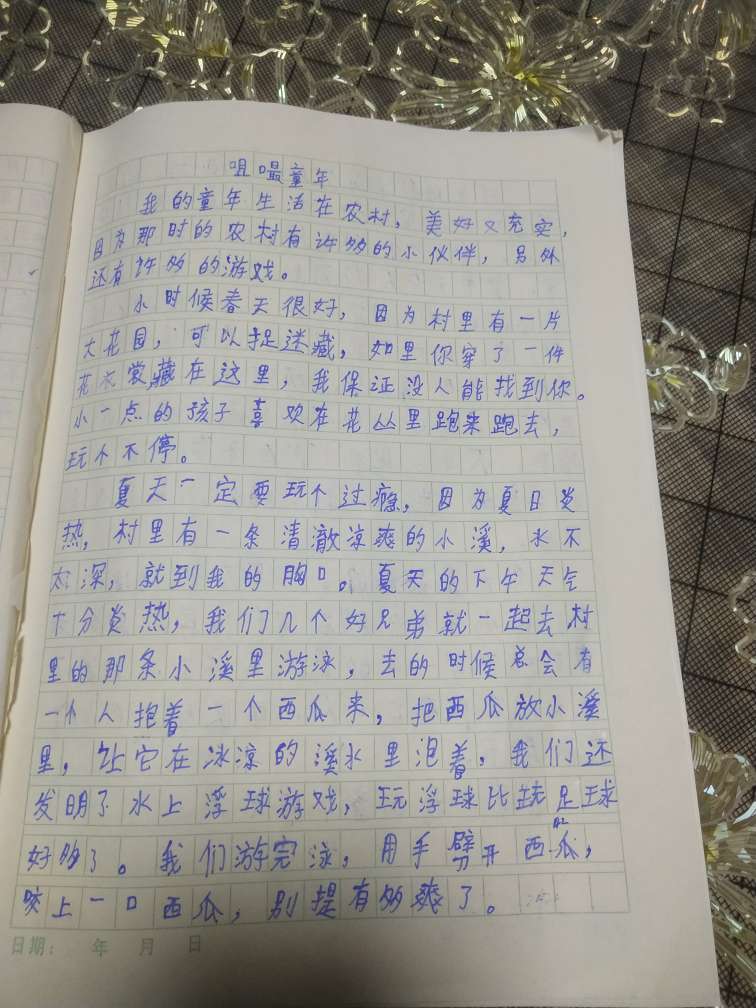 咀嚼童年
我的童年生活在农村，美好又充实，
因为那时的农村有许多的小伙伴，另外
还有许多的游戏。
小时候春天很好，因为村里有一片
大花园，可以捉迷藏，如里你穿了一件
花衣裳藏在这里，我保证没人能找到你。
小一点的孩子喜欢在花丛里跑来跑去，
玩个不停。
夏天一定要玩个过瘾，因为夏日炎
热，村里有一条清澈凉爽的小溪，水不
太深，就到我的胸口。夏天的下午天气
十分炎热，我们几个好兄弟就一起去村
里的那条小溪里游泳，去的时候总会有
一个人抱着一个西瓜来，把西瓜放小溪
里，让它在冰凉的溪水里泡着，我们还
发明了水上浮球游戏，玩浮球比踢足球
好多了。我们游完泳，用手劈开西瓜，
咬上一口西瓜，别提有多爽了。
日期： 年 月 日